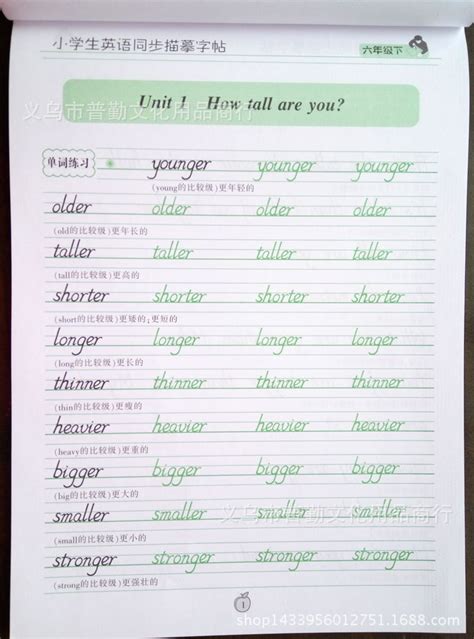 小学生英语同步描摹字帖 六年级下
Unit 1 How tall are you?
义乌市普勤文化用品商行
单词练习 younger younger younger
(young的比较级)更年轻的
older older older older
(old的比较级)更年长的
taller taller taller taller
(tall的比较级)更高的
shorter shorter shorter shorter
(short的比较级)更矮的;更短的
longer longer longer longer
(long的比较级)更长的
thinner thinner thinner thinner
(thin的比较级)更瘦的
heavier heavier heavier heavier
(heavy的比较级)更重的
bigger bigger bigger bigger
(big的比较级)更大的
smaller smaller smaller smaller
义乌市普勤文化用品商行
(small的比较级)更小的
stronger stronger stronger stronger
(strong的比较级)更强壮的
1
shop1433956012751.1688.com